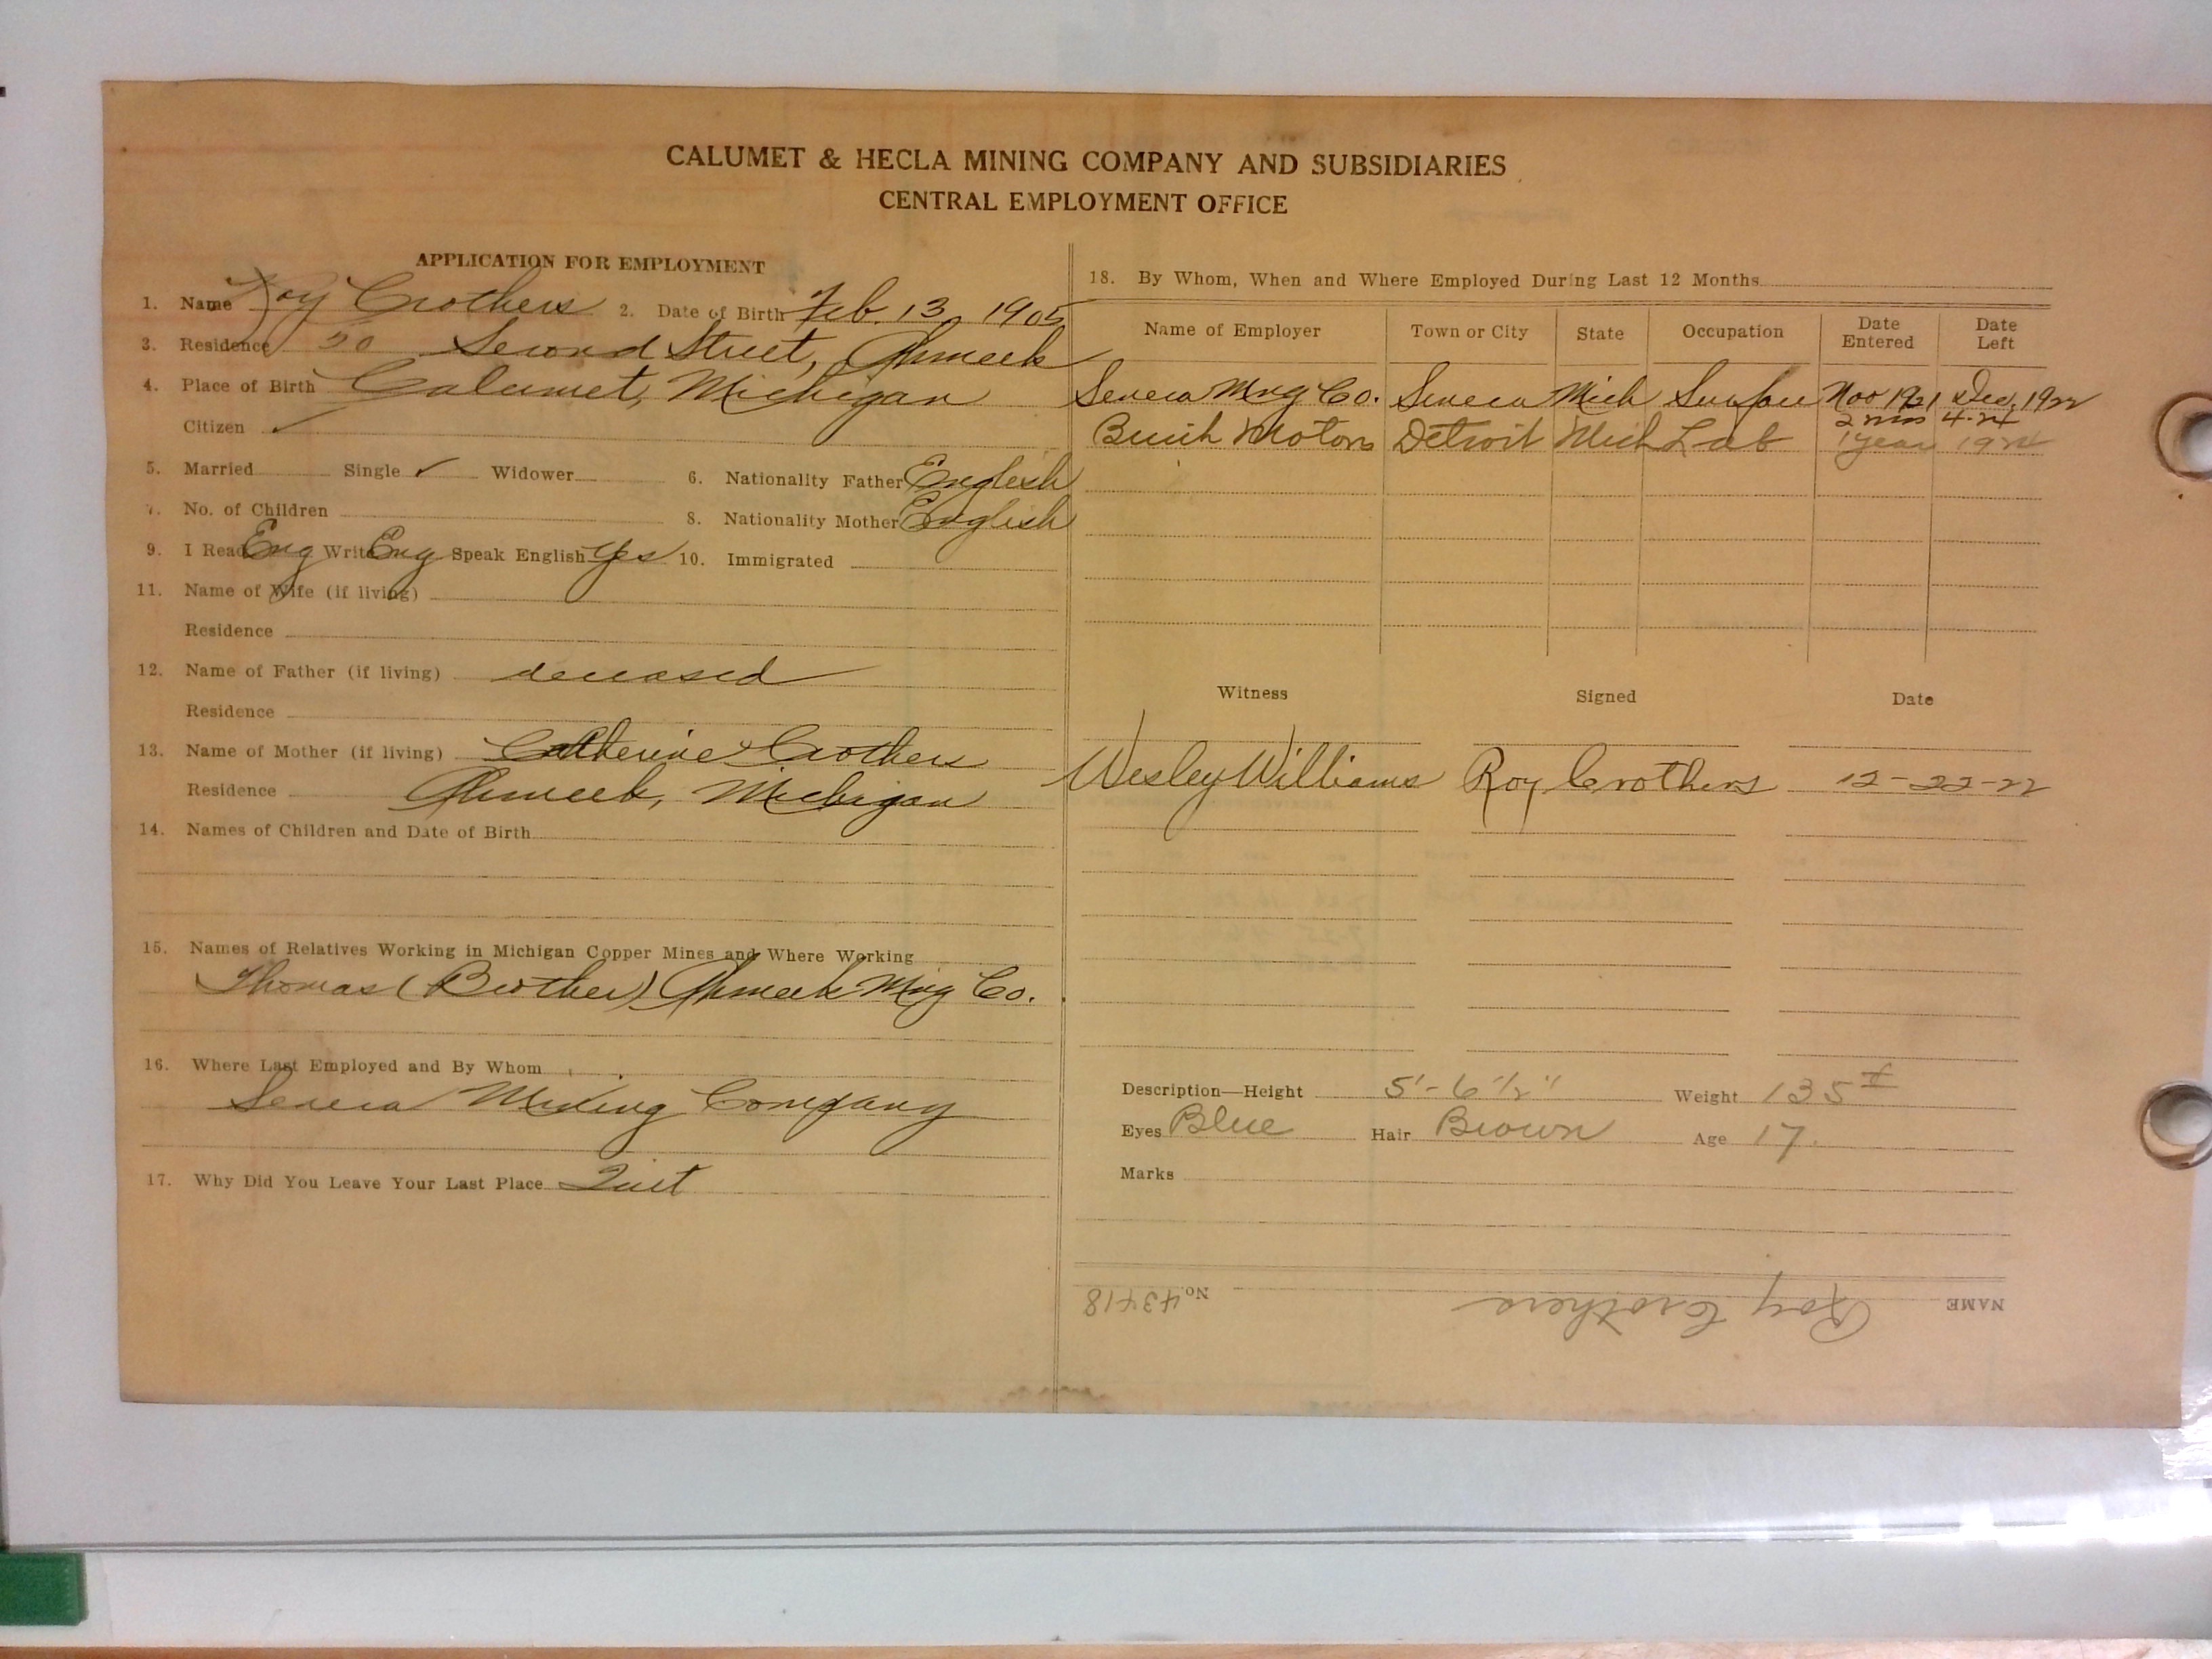 CALUMET & HECLA MINING COMPANY AND SUBSIDIARIES
CENTRAL EMPLOYMENT OFFICE
APPLICATION FOR EMPLOYMENT
1. Name Roy Crothers 2. Date of Birth Feb. 13, 1905
3. Residence 50 Second Street, Ahmeek
4. Place of Birth Calumet, Michigan
Citizen ✓
5. Married Single ✓ Widower 6. Nationality Father English
7. No. of Children 8. Nationality Mother English
9. I Read Eng Write Eng Speak English Yes 10. Immigrated
11. Name of Wife (if living)
Residence
12. Name of Father (if living) deceased
Residence
13. Name of Mother (if living) Catherine Crothers
Residence Ahmeek, Michigan
14. Names of Children and Date of Birth
15. Names of Relatives Working in Michigan Copper Mines and Where Working
Thomas (Brother) Ahmeek Mng Co.
16. Where Last Employed and By Whom
Seneca Mining Company
17. Why Did You Leave Your Last Place Quit
18. By Whom, When and Where Employed During Last 12 Months
Name of Employer Town or City State Occupation Date Entered Date Left
Seneca Mng Co. Seneca Mich Surface Nov 1921 Dec, 1922
2 mos 4-24
Buick Motors Detroit Mich Lab 1 year 1924
Witness Signed Date
Wesley Williams Roy Crothers 12-22-22
Description—Height 5'-6 1/2" Weight 135 #
Eyes Blue Hair Brown Age 17.
Marks
NAME Roy Crothers No. 43418